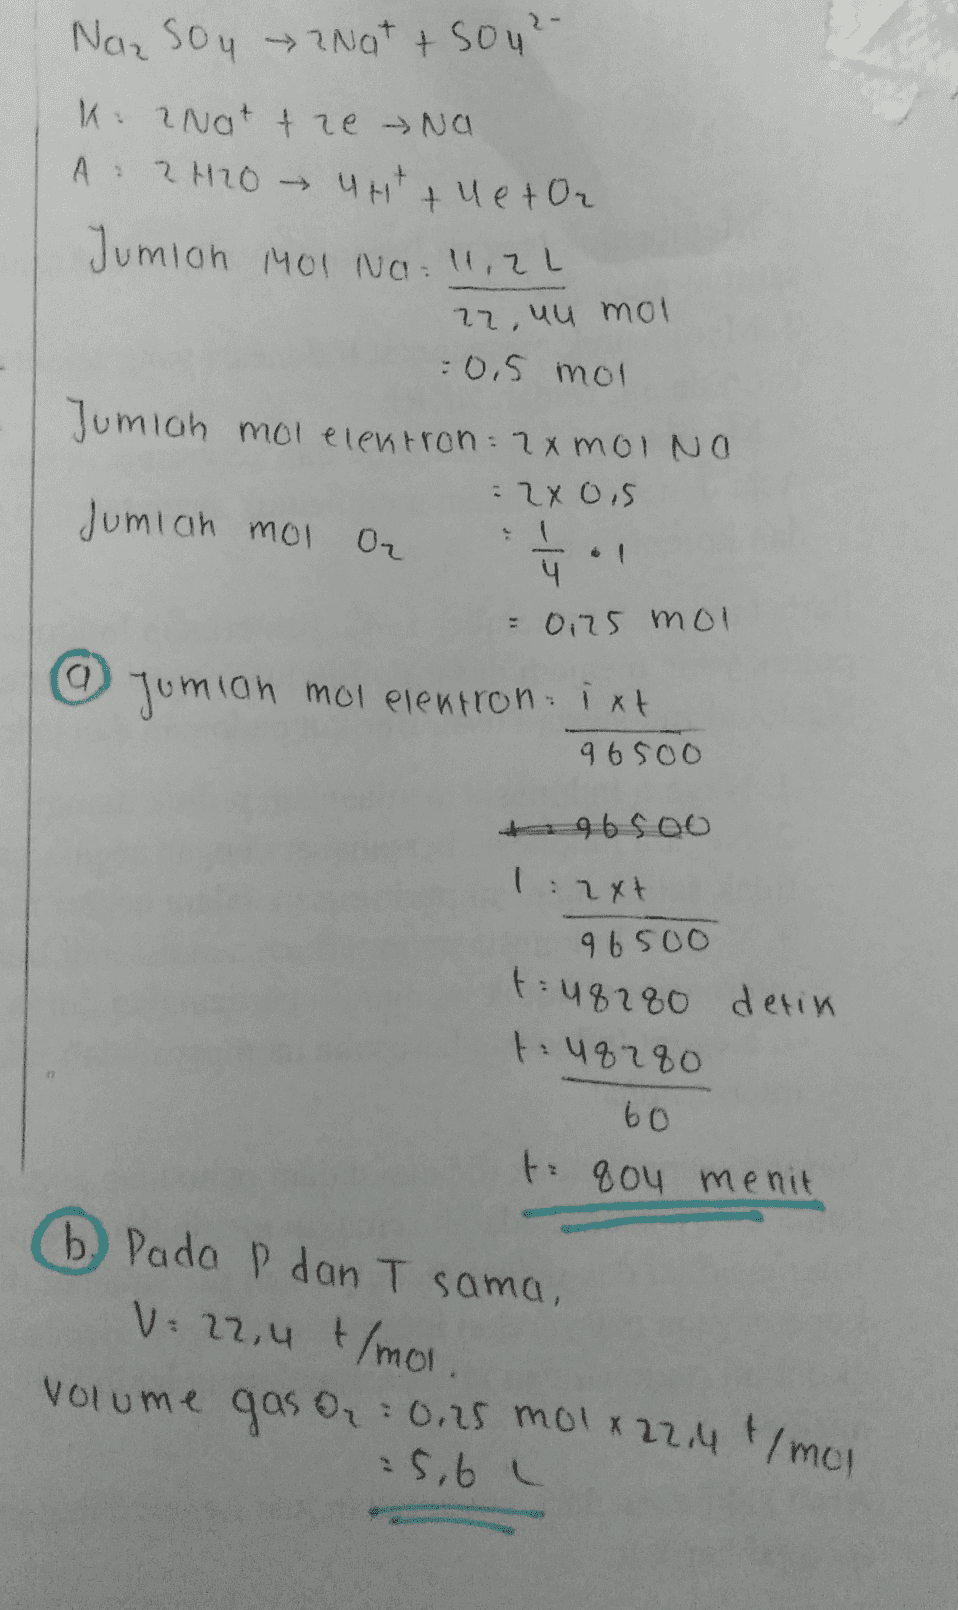 Na₂ SO₄ → 2Na⁺ + SO₄²⁻
K : 2Na⁺ + 2e → Na
A : 2 H2O → 4H⁺ + 4e + O₂
Jumlah Mol Na = 11,2 L
22,44 mol
= 0,5 mol
Jumlah mol elektron = 2 x mol Na
= 2 x 0,5
Jumlah mol O₂ = 1/4 • 1
= 0,25 mol
a Jumlah mol elektron = i x t
96500
t = 96500
1 = 2 x t
96500
t = 48280 detik
t = 48280
60
t = 804 menit
b. Pada P dan T sama,
V = 22,4 t/mol.
Volume gas O₂ = 0,25 mol x 22,4 t/mol
= 5,6 L